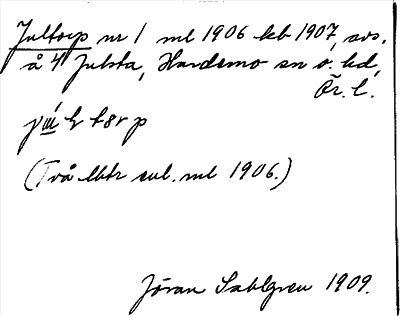 Jultorp nr 1 ml 1906 kb 1907, avs.
å 4 Julsta, Hardemo sn o. hd,
Ör. l.
(Två lbtr enl. ml 1906.)
Jöran Sahlgren 1909.